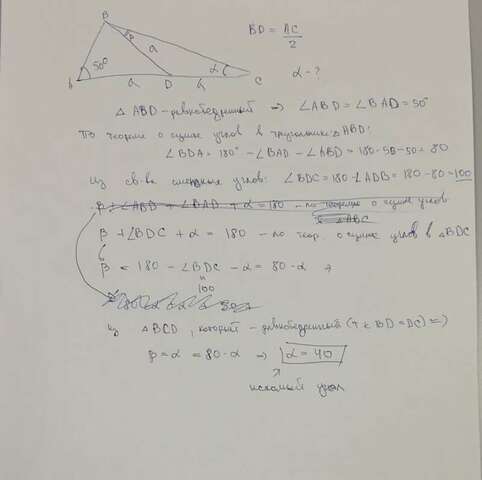 B
β
BD = AC/2
a
α
50°
A
a
D
a
C
α - ?
△ ABD - равнобедренный ⇒ ∠ABD = ∠BAD = 50°
По теореме о сумме углов в треугольнике △ABD:
∠BDA = 180° - ∠BAD - ∠ABD = 180-50-50 = 80
Из св-ва смежных углов: ∠BDC = 180 - ∠ADB = 180-80=100
β + ∠ABD + ∠BAD + α = 180 - по теореме о сумме углов
в △ABC
β + ∠BDC + α = 180 - по теор. о сумме углов в △BDC
β = 180 - ∠BDC - α = 80 - α ⇒
100
Из △BCD, который - равнобедренный (т.к BD = DC) ⇒
β = α = 80 - α ⇒ α = 40
искомый угол